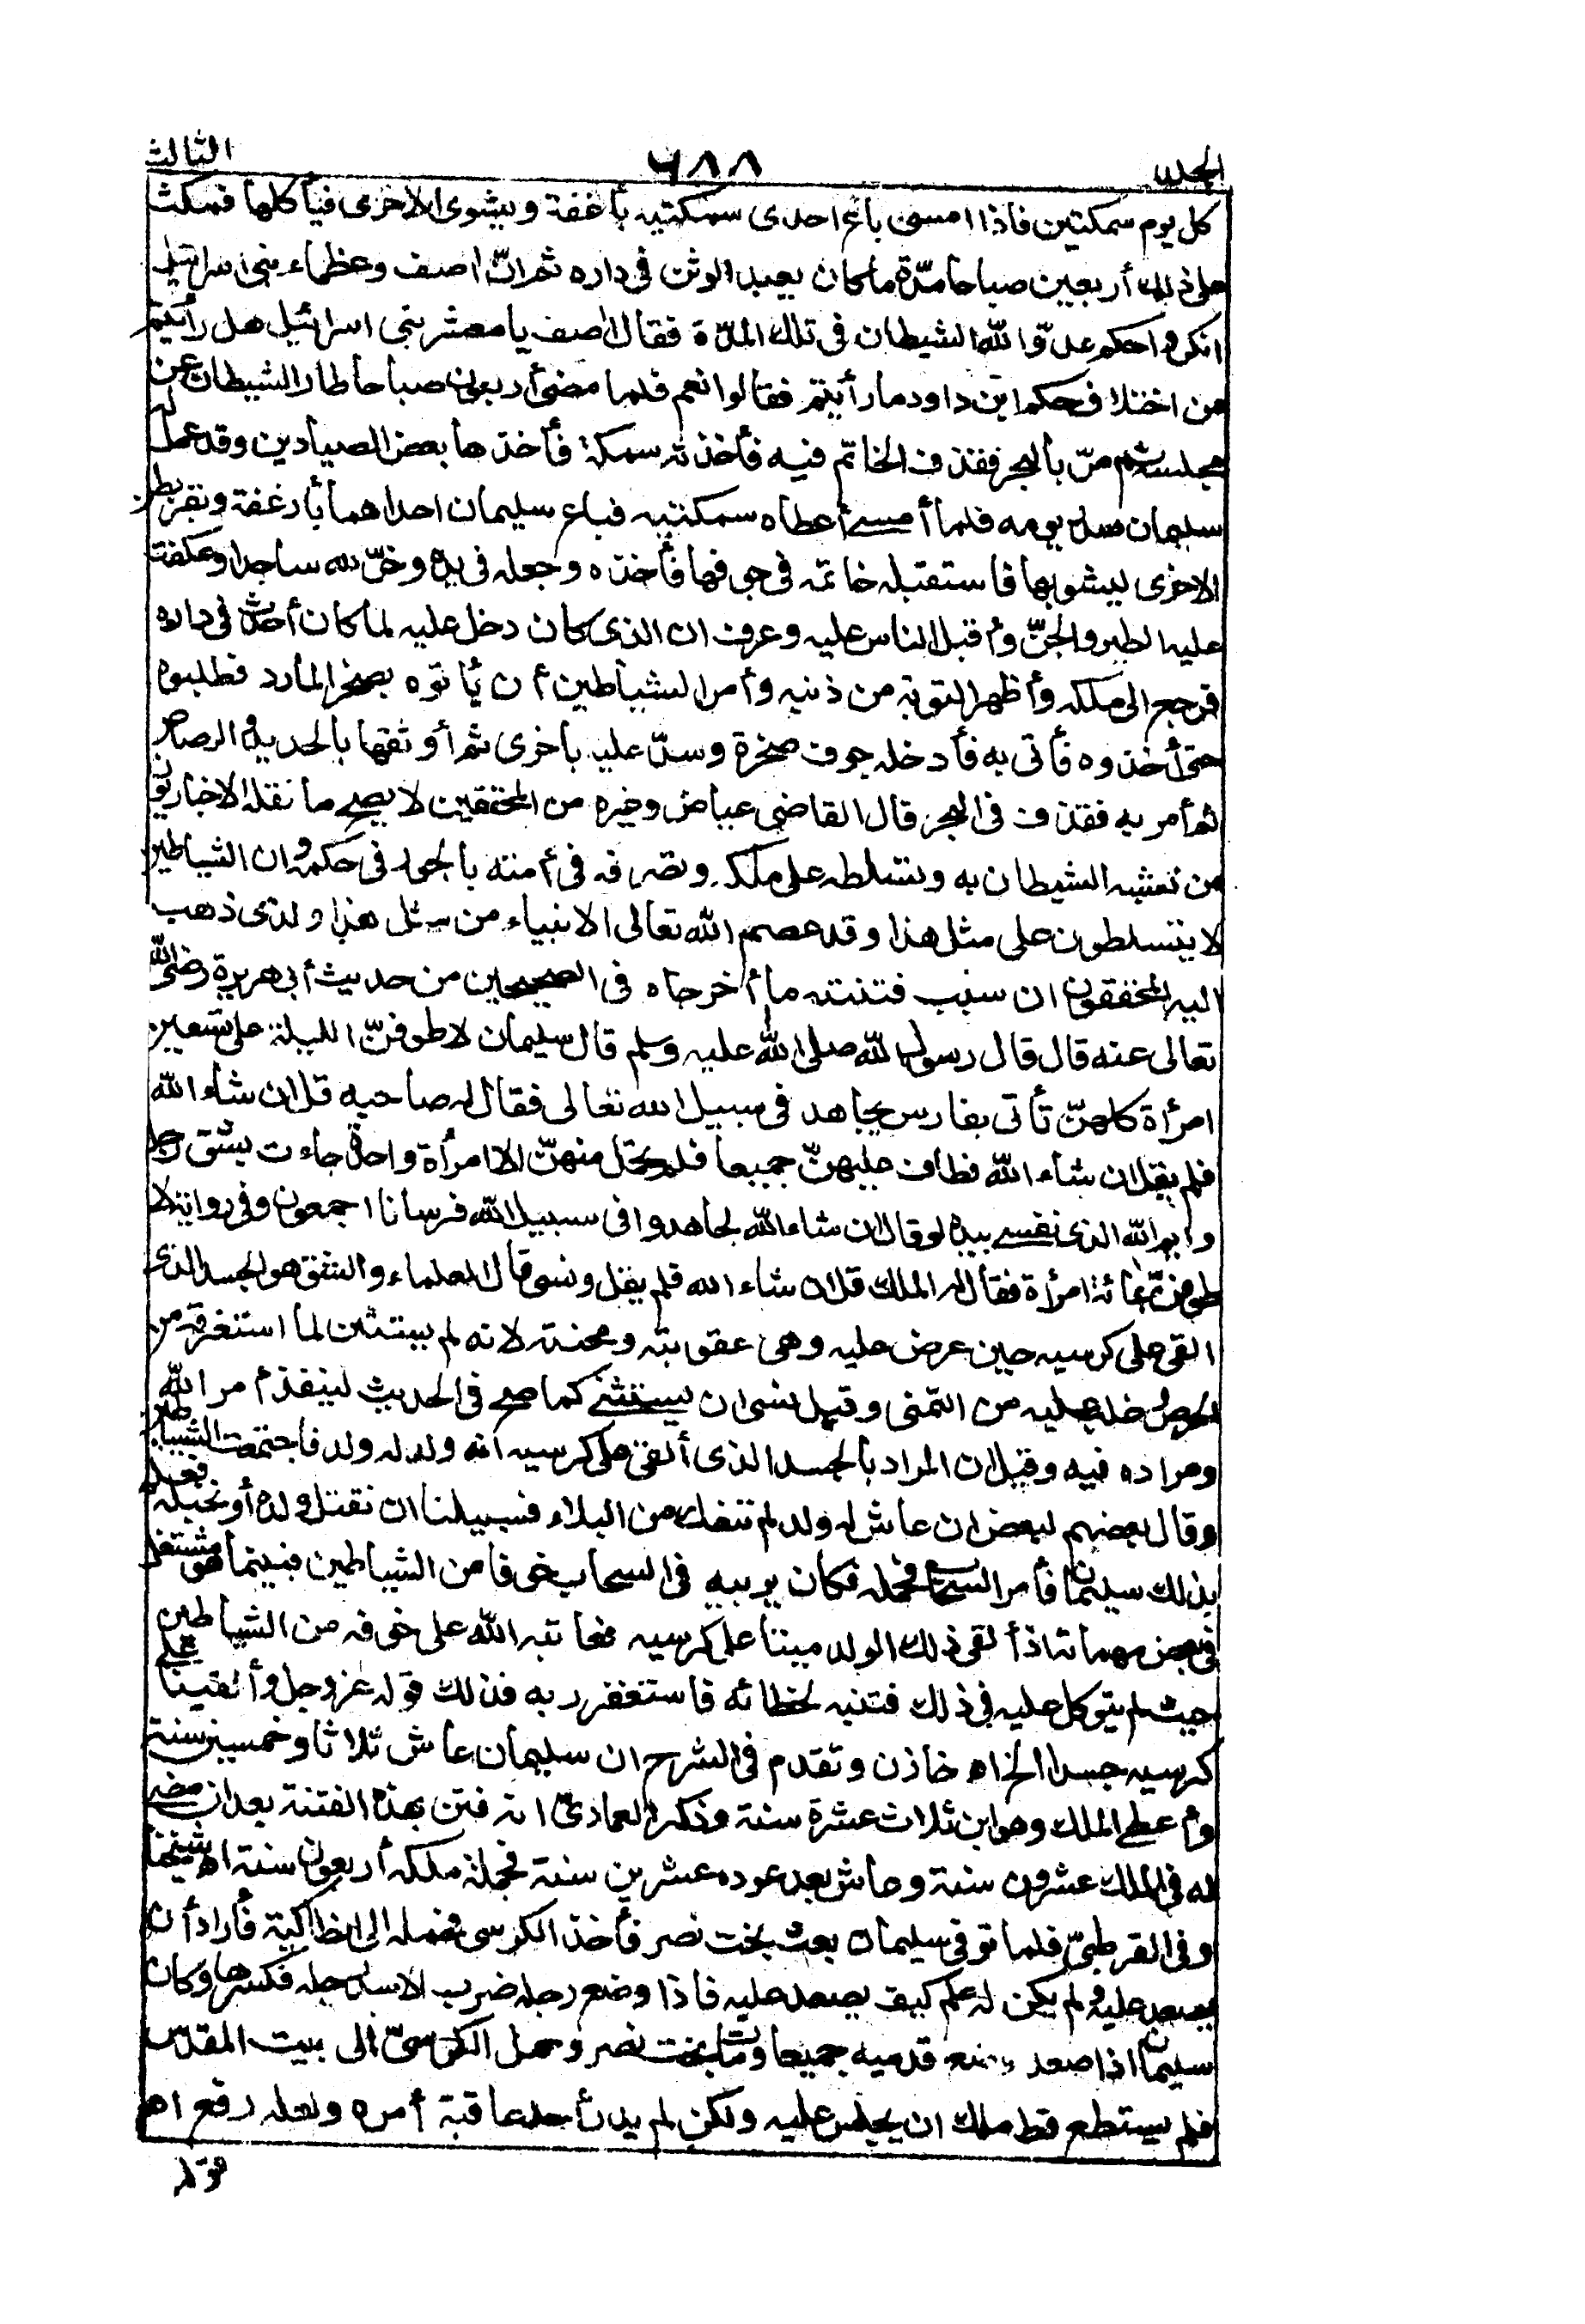 الجلد ٦٨٨ الثالث
كل يوم سمكتين فاذا امسى باع احدى سمكتيه بأرغفة ويشوى الاخرى فيأكلها فمكث
على ذلك أربعين صباحا مدّة ما كان يعبد الوثن فى داره ثم انّ اصف وعظماء بنى اسرائيل
انكروا حكم عدوّ الله الشيطان فى تلك المدّة فقال اصف يا معشر بنى اسرائيل هل رأيتم
من اختلاف حكم ابن داود ما رأيتم فقالوا نعم فلما مضى أربعون صباحا طار الشيطان عن
مجلسه ثم مرّ بالبحر فقذف الخاتم فيه فأخذته سمكة فأخذها بعض الصيادين وقد عمل له
سليمان صدر يومه فلما أمسى أعطاه سمكتيه فباع سليمان احداهما بأرغفة وبقر بطن
الاخرى ليشويها فاستقبله خاتمه فى جوفها فأخذه وجعله فى يده وخرّ لله ساجدا وعكفت
عليه الطير والجنّ وأقبل الناس عليه وعرف ان الذى كان دخل عليه لما كان أحدث فى داره
فرجع الى ملكه وأظهر التوبة من ذنبه وأمر الشياطين أن يأتوه بصخر المارد فطلبوه
حتى أخذوه فأتى به فأدخله جوف صخرة وسدّ عليه بأخرى ثم أوثقها بالحديد والرصاص
ثم أمر به فقذف فى البحر قال القاضى عياض وغيره من المحققين لا يصح ما نقله الاخباريون
من تشبه الشيطان به وتسلطه على ملكه وتصرفه فى أمته بالجور فى حكمه وان الشياطين
لا يتسلطون على مثل هذا وقد عصم الله تعالى الانبياء من مثل هذا والذى ذهب
اليه المحققون ان سبب فتنته ما أخرجاه فى الصحيحين من حديث أبى هريرة رضى الله
تعالى عنه قال قال رسول الله صلى الله عليه وسلم قال سليمان لاطوفنّ الليلة على تسعين
امرأة كلهنّ تأتى بفارس يجاهد فى سبيل الله تعالى فقال له صاحبه قل ان شاء الله
فلم يقل ان شاء الله فطاف عليهنّ جميعا فلم تحمل منهنّ الا امرأة واحدة جاءت بشق رجل
وايم الله الذى نفسى بيده لو قال ان شاء الله لجاهدوا فى سبيل الله فرسانا اجمعون وفى رواية لا
طوفنّ بمائة امرأة فقال له الملك قل ان شاء الله فلم يقل ونسى قال العلماء والشق هو الجسد الذى
القى على كرسيه حين عرض عليه وهى عقوبته ومحنته لانه لم يستثن لما استغرقه من
الحرص وغلب عليه من التمنى وقيل نسى ان يستثنى كما صح فى الحديث لينفذ أمر الله
ومراده فيه وقيل ان المراد بالجسد الذى ألقى على كرسيه انه ولد له ولد فاجتمعت الشياطين
وقال بعضهم لبعض ان عاش له ولد لم ننفك من البلاء فسبيلنا ان نقتل ولده أو نخبله فعلم
بذلك سليمان فأمر السحاب فحمله فكان يربيه فى السحاب خوفا من الشياطين فبينما هو مشتغل
فى بعض مهماته اذ ألقى ذلك الولد ميتا على كرسيه فعاتبه الله على خوفه من الشياطين
حيث لم يتوكل عليه فى ذلك فتنبه لخطائه فاستغفر ربه فذلك قوله عز وجل وألقينا على
كرسيه جسدا الخ اه خازن وتقدم فى الشرح ان سليمان عاش ثلاثا وخمسين سنة
وأعطى الملك وهو ابن ثلاث عشرة سنة وذكر العمادىّ انه فتن بهذه الفتنة بعد ان مضى
له فى الملك عشرون سنة وعاش بعد عوده عشرين سنة فجملة ملكه أربعون سنة اه شيخنا
وفى القرطبىّ فلما توفى سليمان بعث بخت نصر فأخذ الكرسى فحمله الى انطاكية فأراد أن
يصعد عليه ولم يكن له علم كيف يصعد عليه فاذا وضع رجله ضرب الاسد رجله فكسرها وكان
سليمان اذا صعد وضع قدميه جميعا ومات بخت نصر وحمل الكرسىّ الى بيت المقدّس
فلم يستطع قط ملك ان يجلس عليه ولكن لم يدر أحد عاقبة أمره ولعله رفع اه
قولا